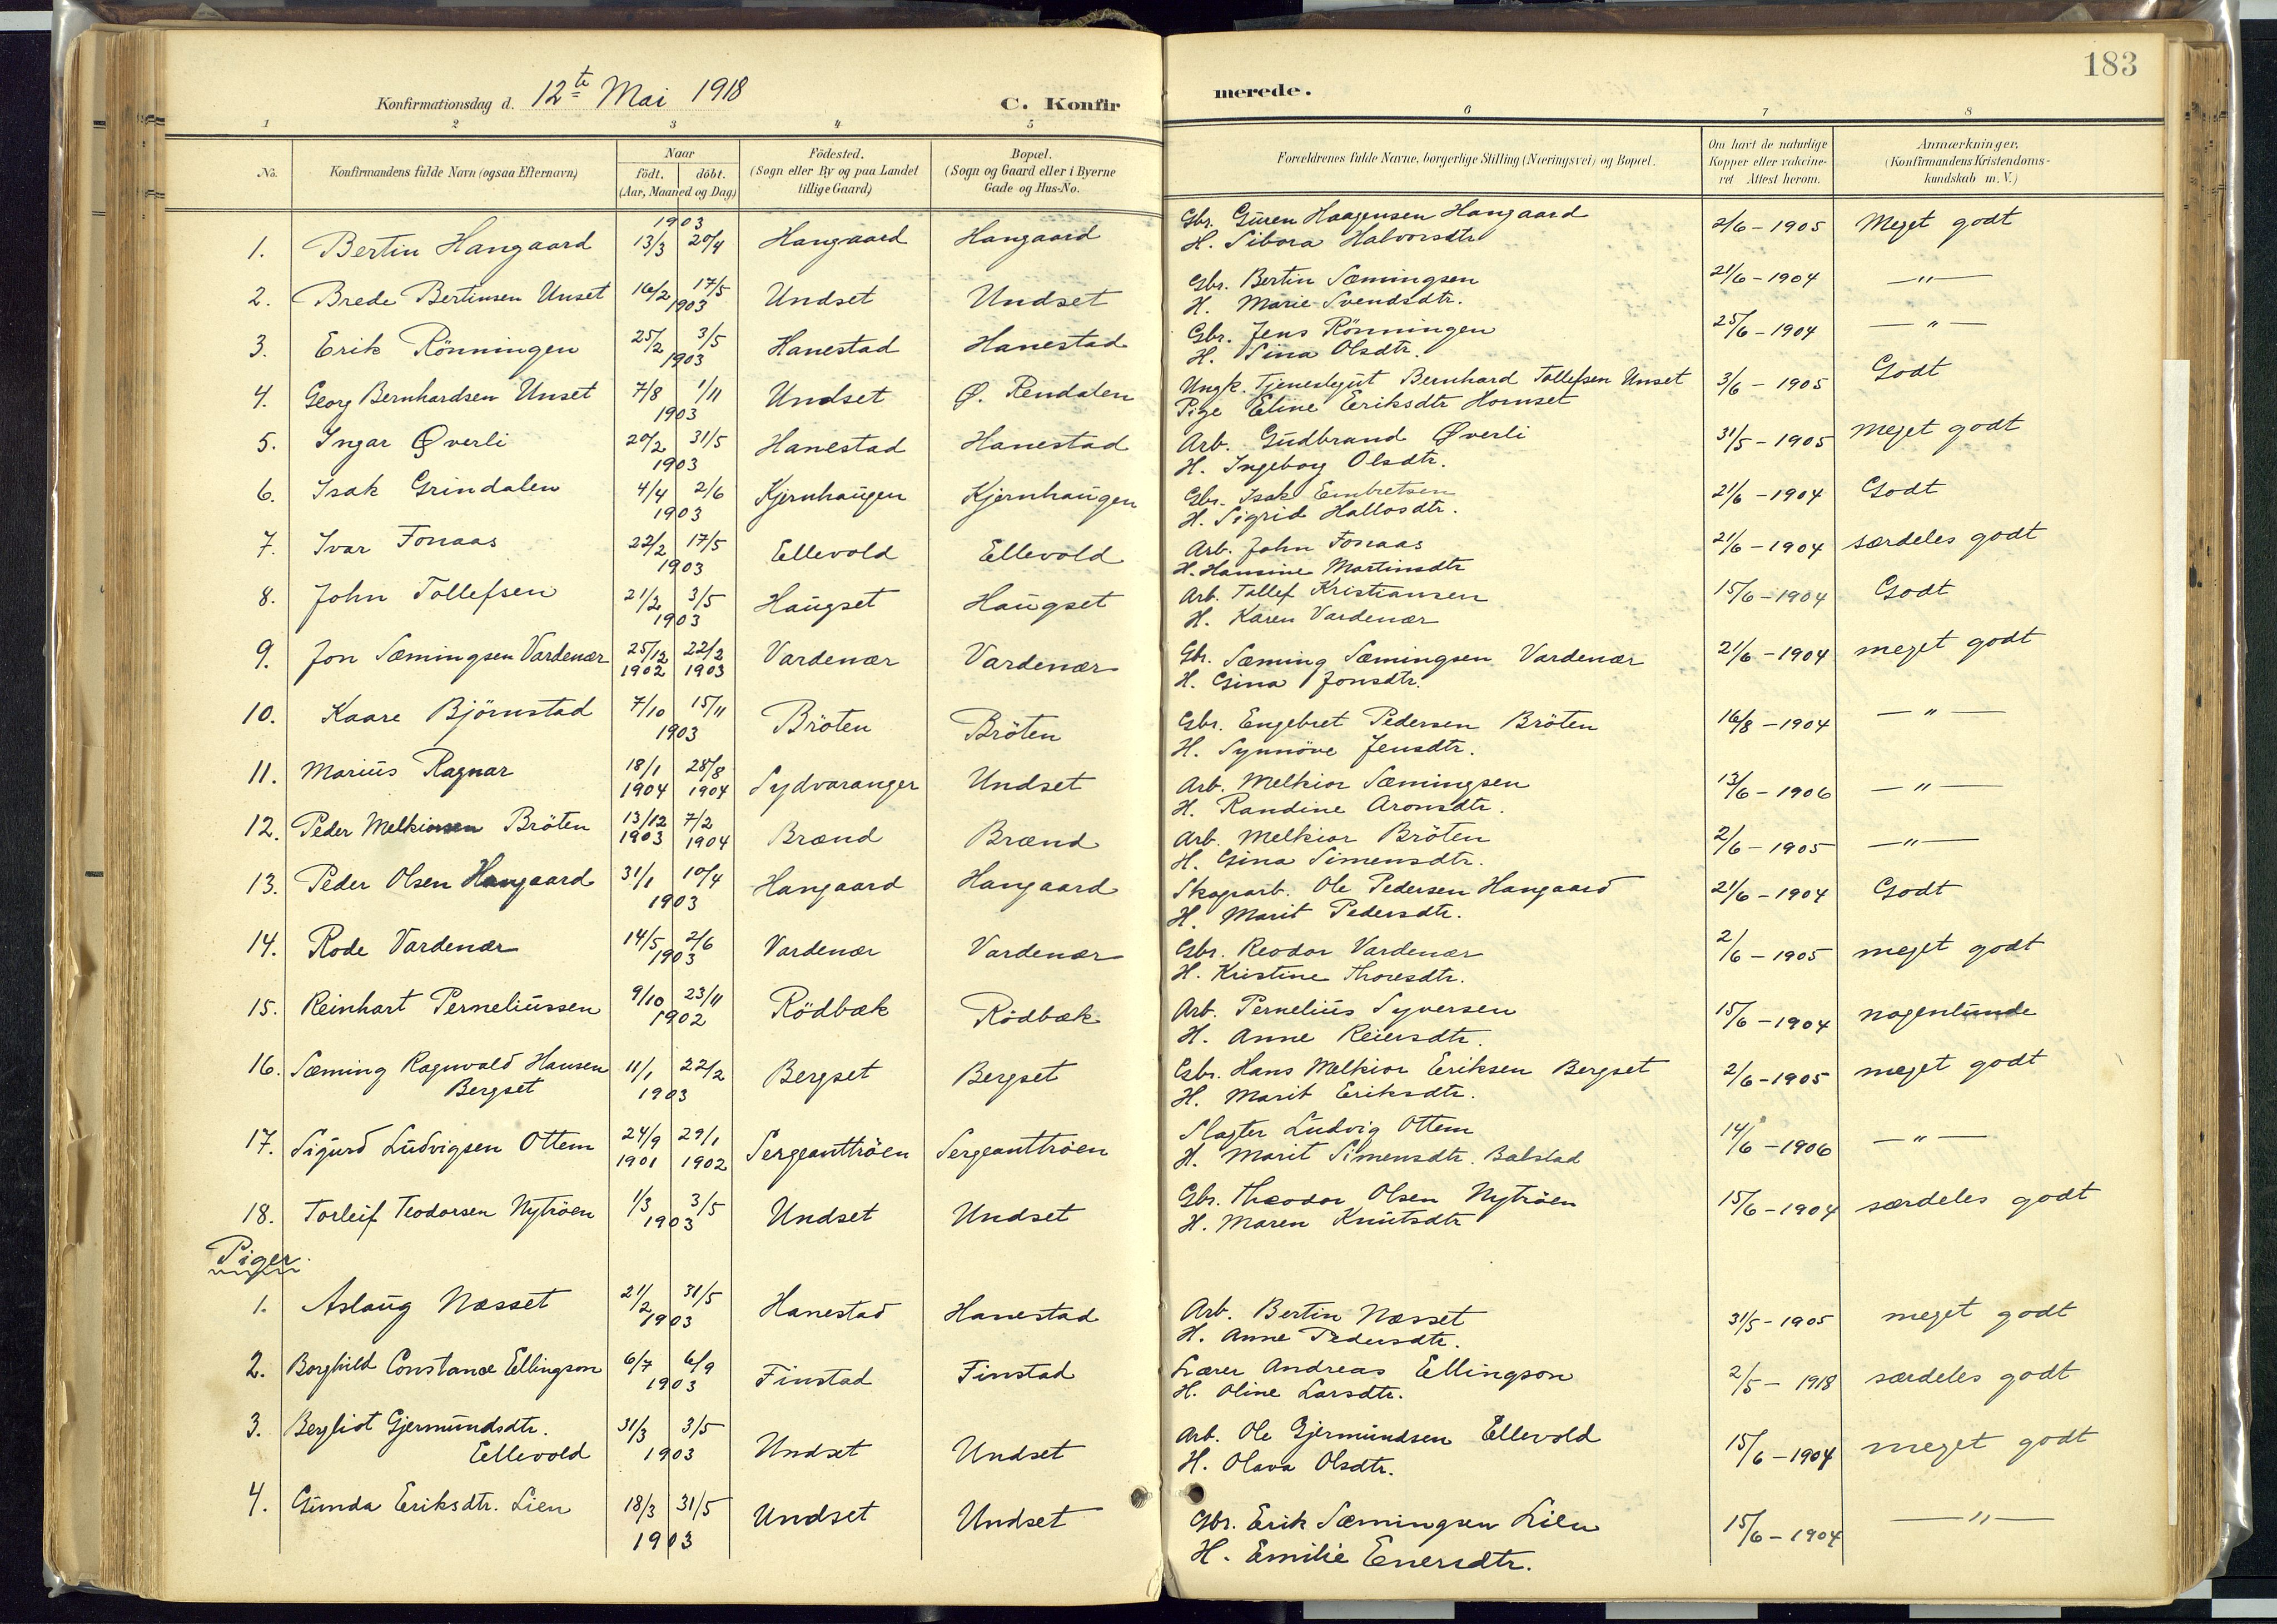 183
Konfirmationsdag d. 12te Mai 1918 C. Konfirmerede.
1 2 3 4 5 6 7 8
No. Konfirmandens fulde Navn (ogsaa Efternavn) Naar födt. döbt. (Aar, Maaned og Dag) Födested. (Sogn eller By og paa Landet tillige Gaard) Bopæl. (Sogn og Gaard eller i Byerne Gade og Hus-No. Forældrenes fulde Navne, borgerlige Stilling (Næringsvei) og Bopæl. Om havt de naturlige Kopper eller vakcineret Attest herom. Anmærkninger. (Konfirmandens Kristendomskundskab m. V.)
1. Bertin Hangaard 13/3 20/4 1903 Hangaard Hangaard Gbr. Guren Haagensen Hangaard 2/6 - 1905 Meget godt
H. Sibora Halvorsdtr
2. Brede Bertinsen Unset 16/2 17/5 1903 Undset Undset Gbr. Bertin Sæmingsen 21/6 - 1904 — " —
H. Marie Svendsdtr.
3. Erik Rönningen 25/2 3/5 1903 Hanestad Hanestad Gbr. Jens Rönningen 25/6 - 1904 — " —
H. Sina Olsdtr.
4. Georg Bernhardsen Unset 7/8 1/11 1903 Undset Ø. Rendalen Ungk. Tjenestegut Bernhard Tollefsen Unset 3/6 - 1905 Godt
Pige Eline Eriksdtr Hornset
5. Ingar Øverli 20/2 31/5 1903 Hanestad Hanestad Arb. Gudbrand Øverli 31/5 - 1905 Meget godt
H. Ingeborg Olsdtr.
6. Isak Grindalen 4/4 2/6 1903 Kjernhaugen Kjernhaugen Gbr. Isak Embretsen 21/6 - 1904 Godt
H. Sigrid Hallosdtr.
7. Ivar Fonaas 22/2 17/5 1903 Ellevold Ellevold Arb. John Fonaas 21/6 - 1904 særdeles godt
H. Hansine Martinsdtr
8. John Tollefsen 21/2 3/5 1903 Haugset Haugset Arb. Tollef Kristiansen 15/6 - 1904 Godt
H. Karen Vardenær
9. Jon Sæmingsen Vardenær 25/12 1902 22/2 1903 Vardenær Vardenær Gbr. Sæming Sæmingsen Vardenær 21/6 - 1904 meget godt
H. Gina Jonsdtr.
10. Kaare Björnstad 7/10 15/11 1903 Bröten Bröten Gbr. Engebret Pedersen Bröten 16/8 - 1904 — " —
H. Synnöve Jensdtr.
11. Marius Ragnar 18/1 1904 28/8 1904 Sydvaranger Undset Arb. Melkior Sæmingsen 13/6 - 1906 — " —
H. Randine Aronsdtr.
12. Peder Melkiorsen Bröten 13/12 1903 7/2 1904 Brænd Brænd Arb. Melkior Bröten 2/6 - 1905 — " —
H. Gina Simensdtr.
13. Peder Olsen Hangaard 31/1 10/4 1903 Hangaard Hangaard Skogsarb. Ole Pedersen Hangaard 21/6 - 1904 Godt
H. Marit Pedersdtr.
14. Rode Vardenær 14/5 2/6 1903 Vardenær Vardenær Gbr. Reodor Vardenær 2/6 - 1905 meget godt
H. Kristine Thoresdtr.
15. Reinhart Perneliussen 9/10 23/11 1902 Rödbæk Rödbæk Arb. Pernelius Syversen 15/6 - 1904 nogenlunde
H. Anne Reiersdtr.
16. Sæming Ragnvald Hansen 11/1 22/2 1903 Bergset Bergset Gbr. Hans Melkior Eriksen Bergset 2/6 - 1905 meget godt
Bergset H. Marit Eriksdtr.
17. Sigurd Ludvigsen Ottem 24/9 1901 29/1 1902 Sergeanttröen Sergeanttröen Slagter Ludvig Ottem 14/6 - 1906 — " —
H. Marit Simensdtr. Balstad
18. Torleif Teodorsen Nytröen 1/3 3/5 1903 Undset Undset Gbr. Theodor Olsen Nytröen 15/6 - 1904 særdeles godt
H. Maren Knutsdtr
Piger.
1. Aslaug Næsset 21/2 31/5 1903 Hanestad Hanestad Arb. Bertin Næsset 31/5 - 1905 meget godt
H. Anne Pedersdtr.
2. Borghild Constance Ellingson 6/7 6/9 1903 Finstad Finstad Lærer Andreas Ellingson 2/5 - 1918 særdeles godt
H. Oline Larsdtr.
3. Bergliot Gjermundsdtr. 31/3 3/5 1903 Undset Undset Arb. Ole Gjermundsen Ellevold 15/6 - 1904 meget godt
Ellevold H. Olava Olsdtr.
4. Gunda Eriksdtr. Lien 18/3 31/5 1903 Undset Undset Gbr. Erik Sæmingsen Lien 15/6 - 1904 — " —
H. Emilie Enersdtr.